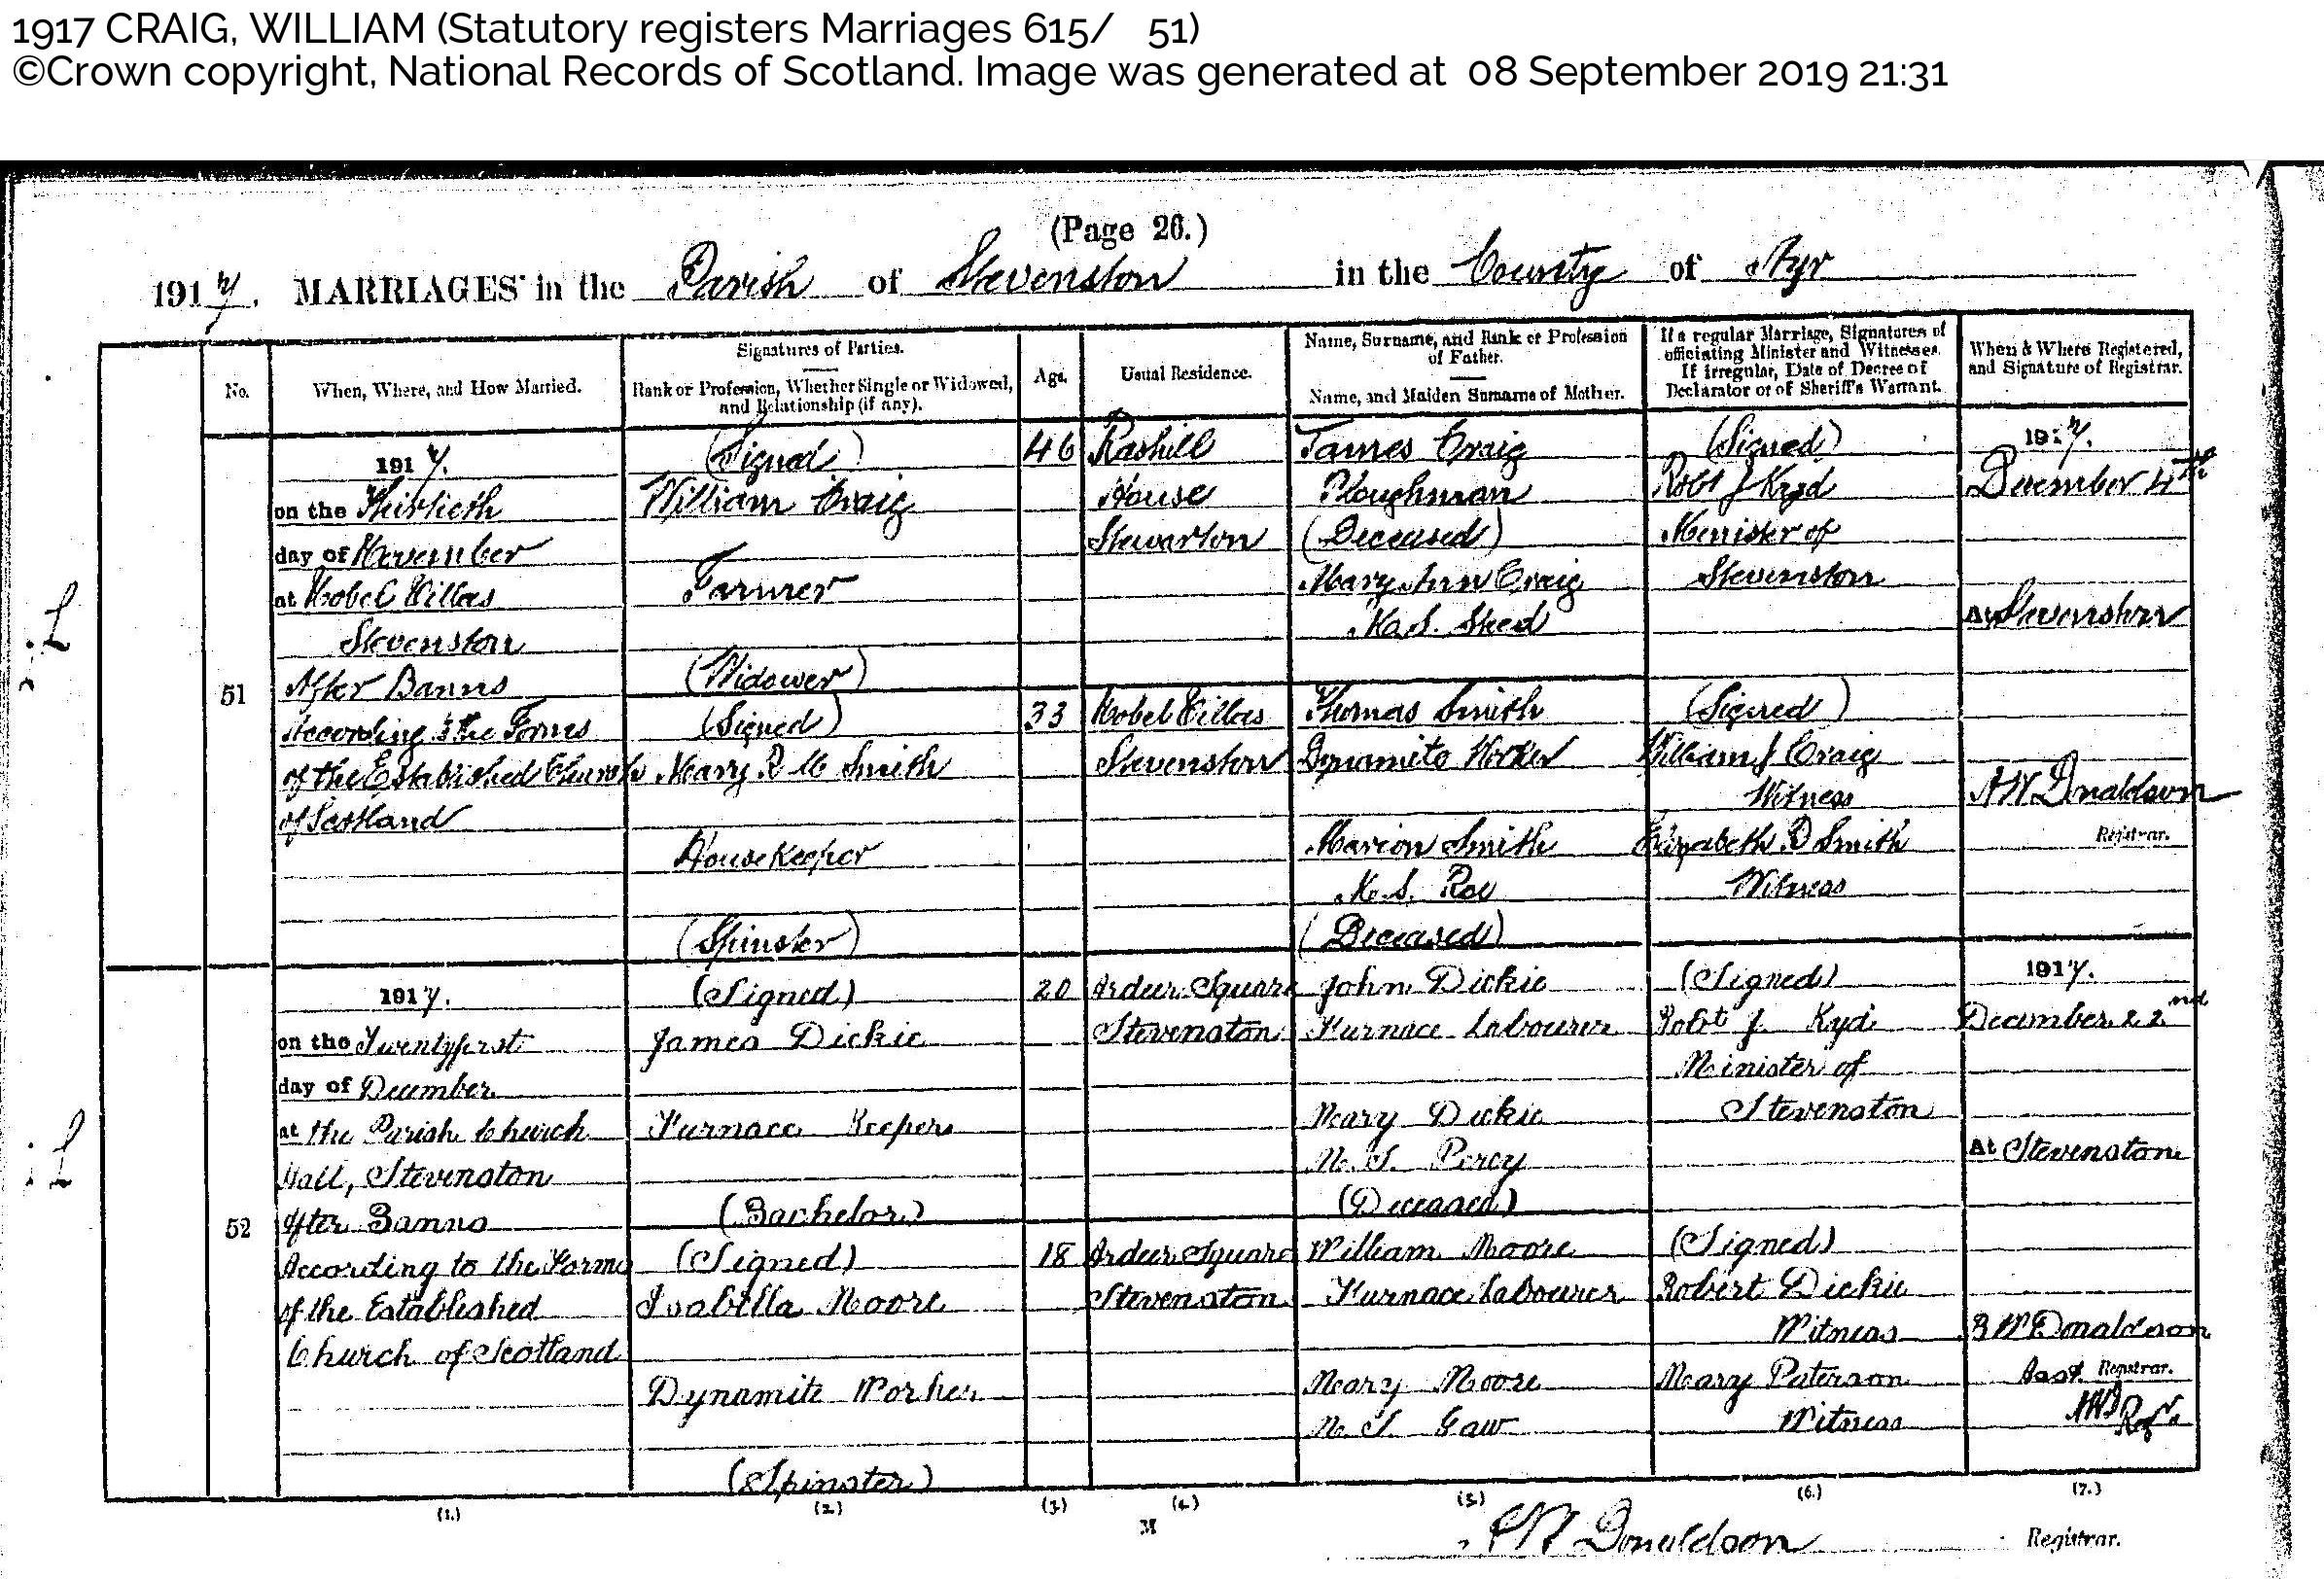 1917 CRAIG, WILLIAM (Statutory registers Marriages 615/ 51)
©Crown copyright, National Records of Scotland. Image was generated at 08 September 2019 21:31
(Page 26.)
1917. MARRIAGES in the Parish of Stevenston in the County of Ayr
No.
When, Where, and How Married.
Signatures of Parties.
Rank or Profession, Whether Single or Widowed,
and Relationship (if any).
Age.
Usual Residence.
Name, Surname, and Rank or Profession
of Father.
Name, and Maiden Surname of Mother.
If a regular Marriage, Signatures of
officiating Minister and Witnesses.
If irregular, Date of Decree of
Declarator or of Sheriff's Warrant.
When & Where Registered,
and Signature of Registrar.
51
1917.
on the Thirtieth
day of November
at Nobel Villas
Stevenston
After Banns
According to the Forms
of the Established Church
of Scotland
(Signed)
William Craig
Farmer
(Widower)
(Signed)
Mary R Mc Smith
Housekeeper
(Spinster)
46
33
Rashill
House
Stewarton
Nobel Villas
Stevenston
James Craig
Ploughman
(Deceased)
Mary Ann Craig
M.S. Sked
Thomas Smith
Dynamite Worker
Marion Smith
M.S. Roe
(Deceased)
(Signed)
Robt J Kyd
Minister of
Stevenston
(Signed)
William J Craig
Witness
Elizabeth D Smith
Witness
1917.
December 4th
At Stevenston
A W Donaldson
Registrar.
52
1917.
on the Twentyfirst
day of December
at the Parish Church
Hall, Stevenston
After Banns
According to the Forms
of the Established
Church of Scotland
(Signed)
James Dickie
Furnace Keeper
(Bachelor)
(Signed)
Isabella Moore
Dynamite Worker
(Spinster)
20
18
Ardeer Square
Stevenston
Ardeer Square
Stevenston
John Dickie
Furnace Labourer
Mary Dickie
M.S. Percy
(Deceased)
William Moore
Furnace Labourer
Mary Moore
M.S. Gaw
(Signed)
Robt J. Kyd
Minister of
Stevenston
(Signed)
Robert Dickie
Witness
Mary Paterson
Witness
1917.
December 22nd
At Stevenston
B W Donaldson
Asst. Registrar.
AWD
Regr.
(1.)
(2.)
(3.)
(4.)
(5.)
(6.)
(7.)
M
A W Donaldson
Registrar.